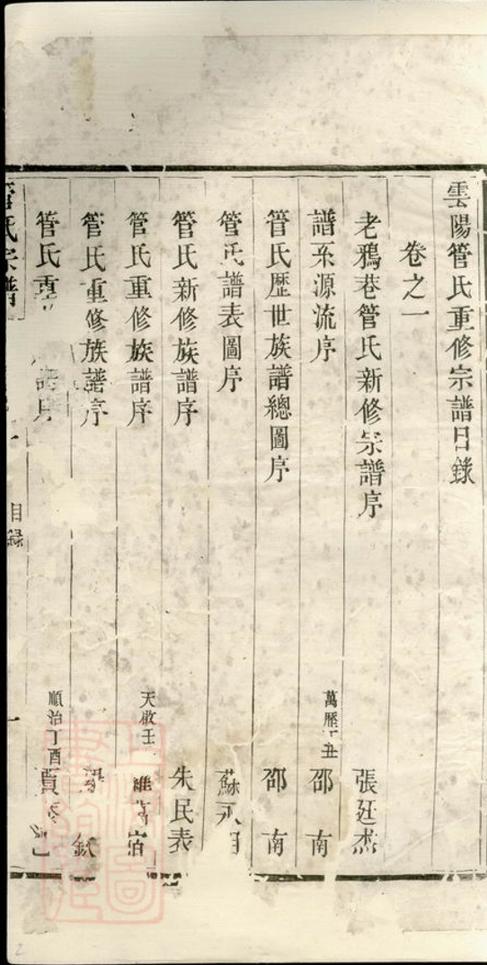 雲陽管氏重修宗譜目錄
卷之一
老鴉巷管氏新修宗譜序 張廷杰
譜系源流序 萬歷丁丑 邵南
管氏歷世族譜總圖序 邵南
管氏譜表圖序 蘇
管氏新修族譜序 朱民表
管氏重修族譜序 天啟壬
管氏重修族譜序 欽
管氏重 譜序 順治丁酉 賈
管氏宗譜 目錄 一
2